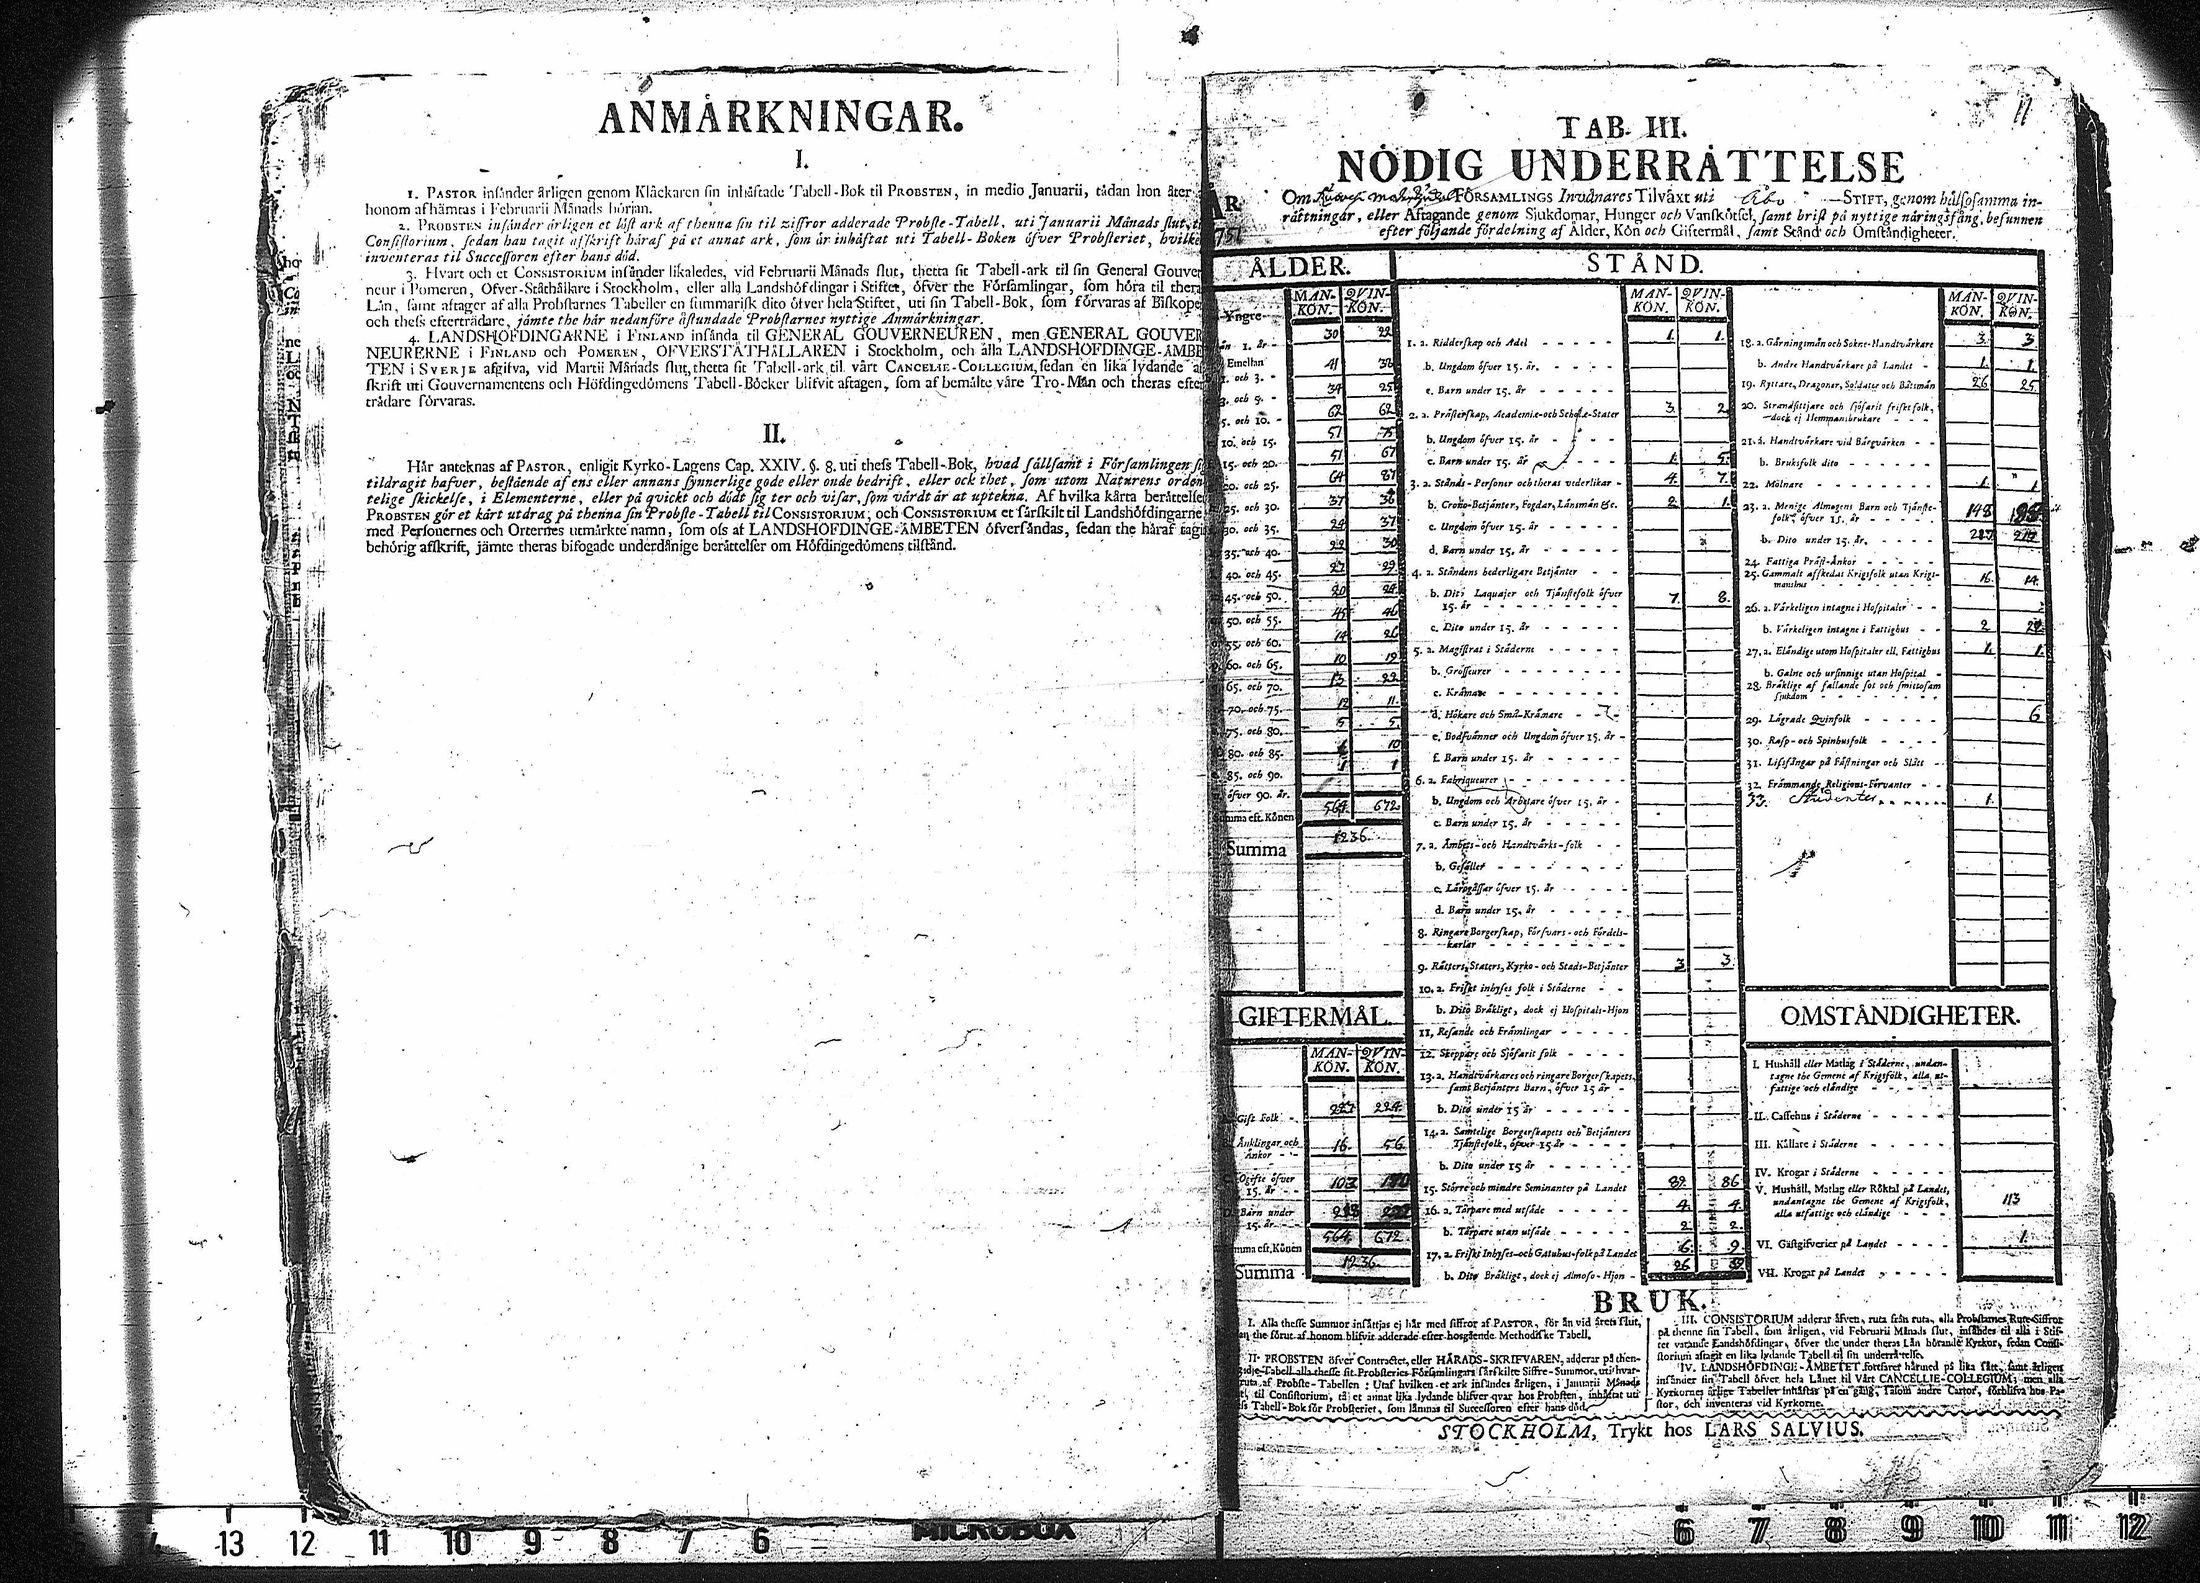 ANMÄRKNINGAR.
I.
1. PASTOR insänder årligen genom Klåckaren sin inhäftade Tabell-Bok til PROBSTEN, in medio Januarii, tådan hon åter
honom afhämras i Februarii Månads början.
2. PROBSTEN insänder årligen et löst ark af thenna sin til ziffror adderade Probste-Tabell, uti Januarii Månads slut, t
Consistorium, sedan han tagit affskrift häraf på et annat ark, som är inhäftat uti Tabell-Boken öfver Probsteriet, hvilke
inventeras til Successoren efter hans död.
3. Hvart och et CONSISTORIUM insänder likaledes, vid Februarii Månads slut, thetta sit Tabell-ark til sin General Gouver
neur i Pomeren, Öfver-Ståthållare i Stockholm, eller alla Landshöfdingar i Stiftet, öfver the Församlingar, som höra til thera
Län, samt aftager af alla Probstarnes Tabeller en summarisk dito öfver hela Stiftet, uti sin Tabell-Bok, som förvaras af Biskope
och thess efterträdare, jämte the här nedanföre åstundade Probstarnes nyttige Anmärkningar.
4. LANDSHÖFDINGARNE i FINLAND insända til GENERAL GOUVERNEUREN, men GENERAL GOUVER
NEURERNE i FINLAND och POMEREN, ÖFVERSTÅTHÅLLAREN i Stockholm, och alla LANDSHÖFDINGE-ÄMBE
TEN i SVERJE afgifva, vid Martii Månads slut, thetta sit Tabell-ark til vårt CANCELIE-COLLEGIUM, sedan en lika lydande af
skrift uti Gouvernamentens och Höfdingedömens Tabell-Böcker blifvit aftagen, som af bemälte våre Tro-Män och theras efter
trädare förvaras.
II.
Här anteknas af PASTOR, enligit Kyrko-Lagens Cap. XXIV. §. 8. uti thess Tabell-Bok, hvad sällsamt i Församlingen si
tildragit hafver, bestående af ens eller annans synnerlige gode eller onde bedrift, eller ock thet, som utom Naturens orden
telige skickelse, i Elementerne, eller på qvickt och dödt sig ter och visar, som värdt är at uptekna. Af hvilka kårta berättelser
PROBSTEN gör et kårt utdrag på thenna sin Probste-Tabell til CONSISTORIUM, och CONSISTORIUM et särskilt til Landshöfdingarne,
med Personernes och Orternes utmärkte namn, som oss af LANDSHÖFDINGE-ÄMBETEN öfversändas, sedan the häraf tagit
behörig affskrift, jämte theras bifogade underdånige berättelser om Höfdingedömens tilstånd.
11
TAB. III.
NÖDIG UNDERRÄTTELSE
Om FÖRSAMLINGS Invånares Tilväxt uti Åbo STIFT, genom hälsosamma in-
rättningar, eller Aftagande genom Sjukdomar, Hunger och Vanskötsel, samt brist på nyttige näringsfång, befunnen
efter följande fördelning af Ålder, Kön och Giftermål, samt Stånd och Omständigheter.
ÅLDER.
MAN-KÖN. QVIN-KÖN.
Yngre
än 1. år - 30 22
Emellan
1. och 3. - 41
3. och 5. - 34 25
5. och 10. - 62 62
10. och 15. 57 75
15. och 20. 51 67
20. och 25. 64 87
25. och 30. 37 36
30. och 35. 24 37
35. och 40. 22 30
40. och 45. 27 29
45. och 50. 20
50. och 55. 45 46
55. och 60. 14 26
60. och 65. 10 19
65. och 70. 13 22
70. och 75. 12 11
75. och 80. 5 5
80. och 85. 10
85. och 90. 1 1
öfver 90. år.
Summa eft. Könen 564 672
Summa 1236.
GIFTERMÅL.
MAN-KÖN. QVIN-KÖN.
Gift Folk - 227 224
Änklingar och Änkor - 16 56
Ogifte öfver 15. år - 103
Barn under 15. år
Summa eft. Könen 564 672
Summa 1236
STÅND.
MAN-KÖN. QVIN-KÖN.
1. a. Ridderskap och Adel 1. 1.
b. Ungdom öfver 15. år.
c. Barn under 15. år
2. a. Prästerskap, Academiæ-och Scholæ-Stater 3. 2
b. Ungdom öfver 15. år
c. Barn under 15. år 1. 5.
3. a. Stånds-Personer och theras vederlikar 4. 7.
b. Crono-Betjänter, Fogdar, Länsmän &c. 2 1.
c. Ungdom öfver 15. år
d. Barn under 15. år
4. a. Ståndens hederligare Betjänter
b. Dito Laquajer och Tjänstefolk öfver 15. år 7. 8.
c. Dito under 15. år
5. a. Magistrat i Städerne
b. Grosseurer
c. Krämare
d. Hökare och Små-Krämare
e. Bodsvänner och Ungdom öfver 15. år
f. Barn under 15. år
6. a. Fabriqueurer
b. Ungdom och Arbetare öfver 15. år
c. Barn under 15. år
7. a. Ämbets-och Handtvärks-folk
b. Gesäller
c. Lärogåssar öfver 15. år
d. Barn under 15. år
8. Ringare Borgerskap, Försvars-och Fördels-karlar
9. Rätters, Staters, Kyrko-och Stads-Betjänter 3 3
10. a. Friskt inhyses folk i Städerne
b. Dito Bräkligt, dock ej Hospitals-Hjon
11. Resande och Främlingar
12. Skeppare och Sjöfarit folk
13. a. Handtvärkares och ringare Borgerskapets, samt Betjänters Barn, öfver 15 år
b. Dito under 15 år
14. a. Samtelige Borgerskapets och Betjänters Tjänstefolk, öfver 15 år
b. Dito under 15 år
15. Större och mindre Seminanter på Landet 89. 86
16. a. Tårpare med utsäde 4. 4.
b. Tårpare utan utsäde 2 2.
17. a. Friskt Inhyses-och Gatuhus-folk på Landet 6. 9.
b. Dito Bräkligt, dock ej Almoso-Hjon 26
MAN-KÖN. QVIN-KÖN.
18. a. Gärningsmän och Sokne-Handtvärkare 3. 3
b. Andre Handtvärkare på Landet 1. 1.
19. Ryttare, Dragoner, Soldater och Båtsmän 26 25.
20. Strandsittjare och sjöfarit friskt folk, dock ej Hemmansbrukare
21. a. Handtvärkare vid Bärgvärken
b. Bruksfolk dito
22. Mölnare 1. 1
23. a. Menige Almogens Barn och Tjänstefolk, öfver 15. år 148
b. Dito under 15. år.
24. Fattiga Präst-Änkor
25. Gammalt affskedat Krigsfolk utan Krigsmanshus 16. 14.
26. a. Värkeligen intagne i Hospitaler
b. Värkeligen intagne i Fattighus 2
27. a. Eländige utom Hospitaler ell. Fattighus 1. 1.
b. Galne och ursinnige utan Hospital
28. Bräklige af fallande sot och smittosam sjukdom
29. Lägrade Qvinfolk 6
30. Rasp-och Spinhusfolk
31. Lifsfångar på Fästningar och Slått
32. Främmande Religions-Förvanter
33. Studenter 1.
OMSTÄNDIGHETER.
I. Hushåll eller Matlag i Städerne, undantagne the Gemene af Krigsfolk, alla utfattige och eländige
II. Caffehus i Städerne
III. Källare i Städerne
IV. Krogar i Städerne
V. Hushåll, Matlag eller Röktal på Landet, undantagne the Gemene af Krigsfolk, alla utfattige och eländige 113
VI. Gästgifverier på Landet 1.
VII. Krogar på Landet
BRUK.
I. Alla thesse Summor insättjas ej här med siffror af PASTOR, för än vid årets slut,
än the förut af honom blifvit adderade efter hosgående Methodiske Tabell.
II. PROBSTEN öfver Contractet, eller HÄRADS-SKRIFVAREN, adderar på then-
ruta af Probste-Tabellen: Utaf hvilken et ark insändes årligen, i Januarii Månads
til Consistorium, tå et annat lika lydande blifver qvar hos Probsten, inhäftat uti
Tabell-Bok för Probsteriet, som lämnas til Successoren efter hans död.
III. CONSISTORIUM adderar äfven, ruta från ruta, alla Probstarnes Rute-Siffror
på thenne sin Tabell, som årligen, vid Februarii Månads slut, insändes til alla i Stif-
tet varande Landshöfdingar, öfver the under theras Län hörande Kyrkor, sedan Consi-
storium aftagit en lika lydande Tabell til sin underrättelse.
IV. LANDSHÖFDINGE-ÄMBETET fortfaret härmed på lika sätt, samt årligen
insänder sin Tabell öfver hela Länet til Vårt CANCELLIE-COLLEGIUM; men alla
Kyrkornes årlige Tabeller inhäftas på en gång, såsom andre Cartor, förblifva hos Pa-
stor, och inventeras vid Kyrkorne.
STOCKHOLM, Trykt hos LARS SALVIUS.
13 12 11 10 9 8 7 6 MICROBOX 6 7 8 9 10 11 12